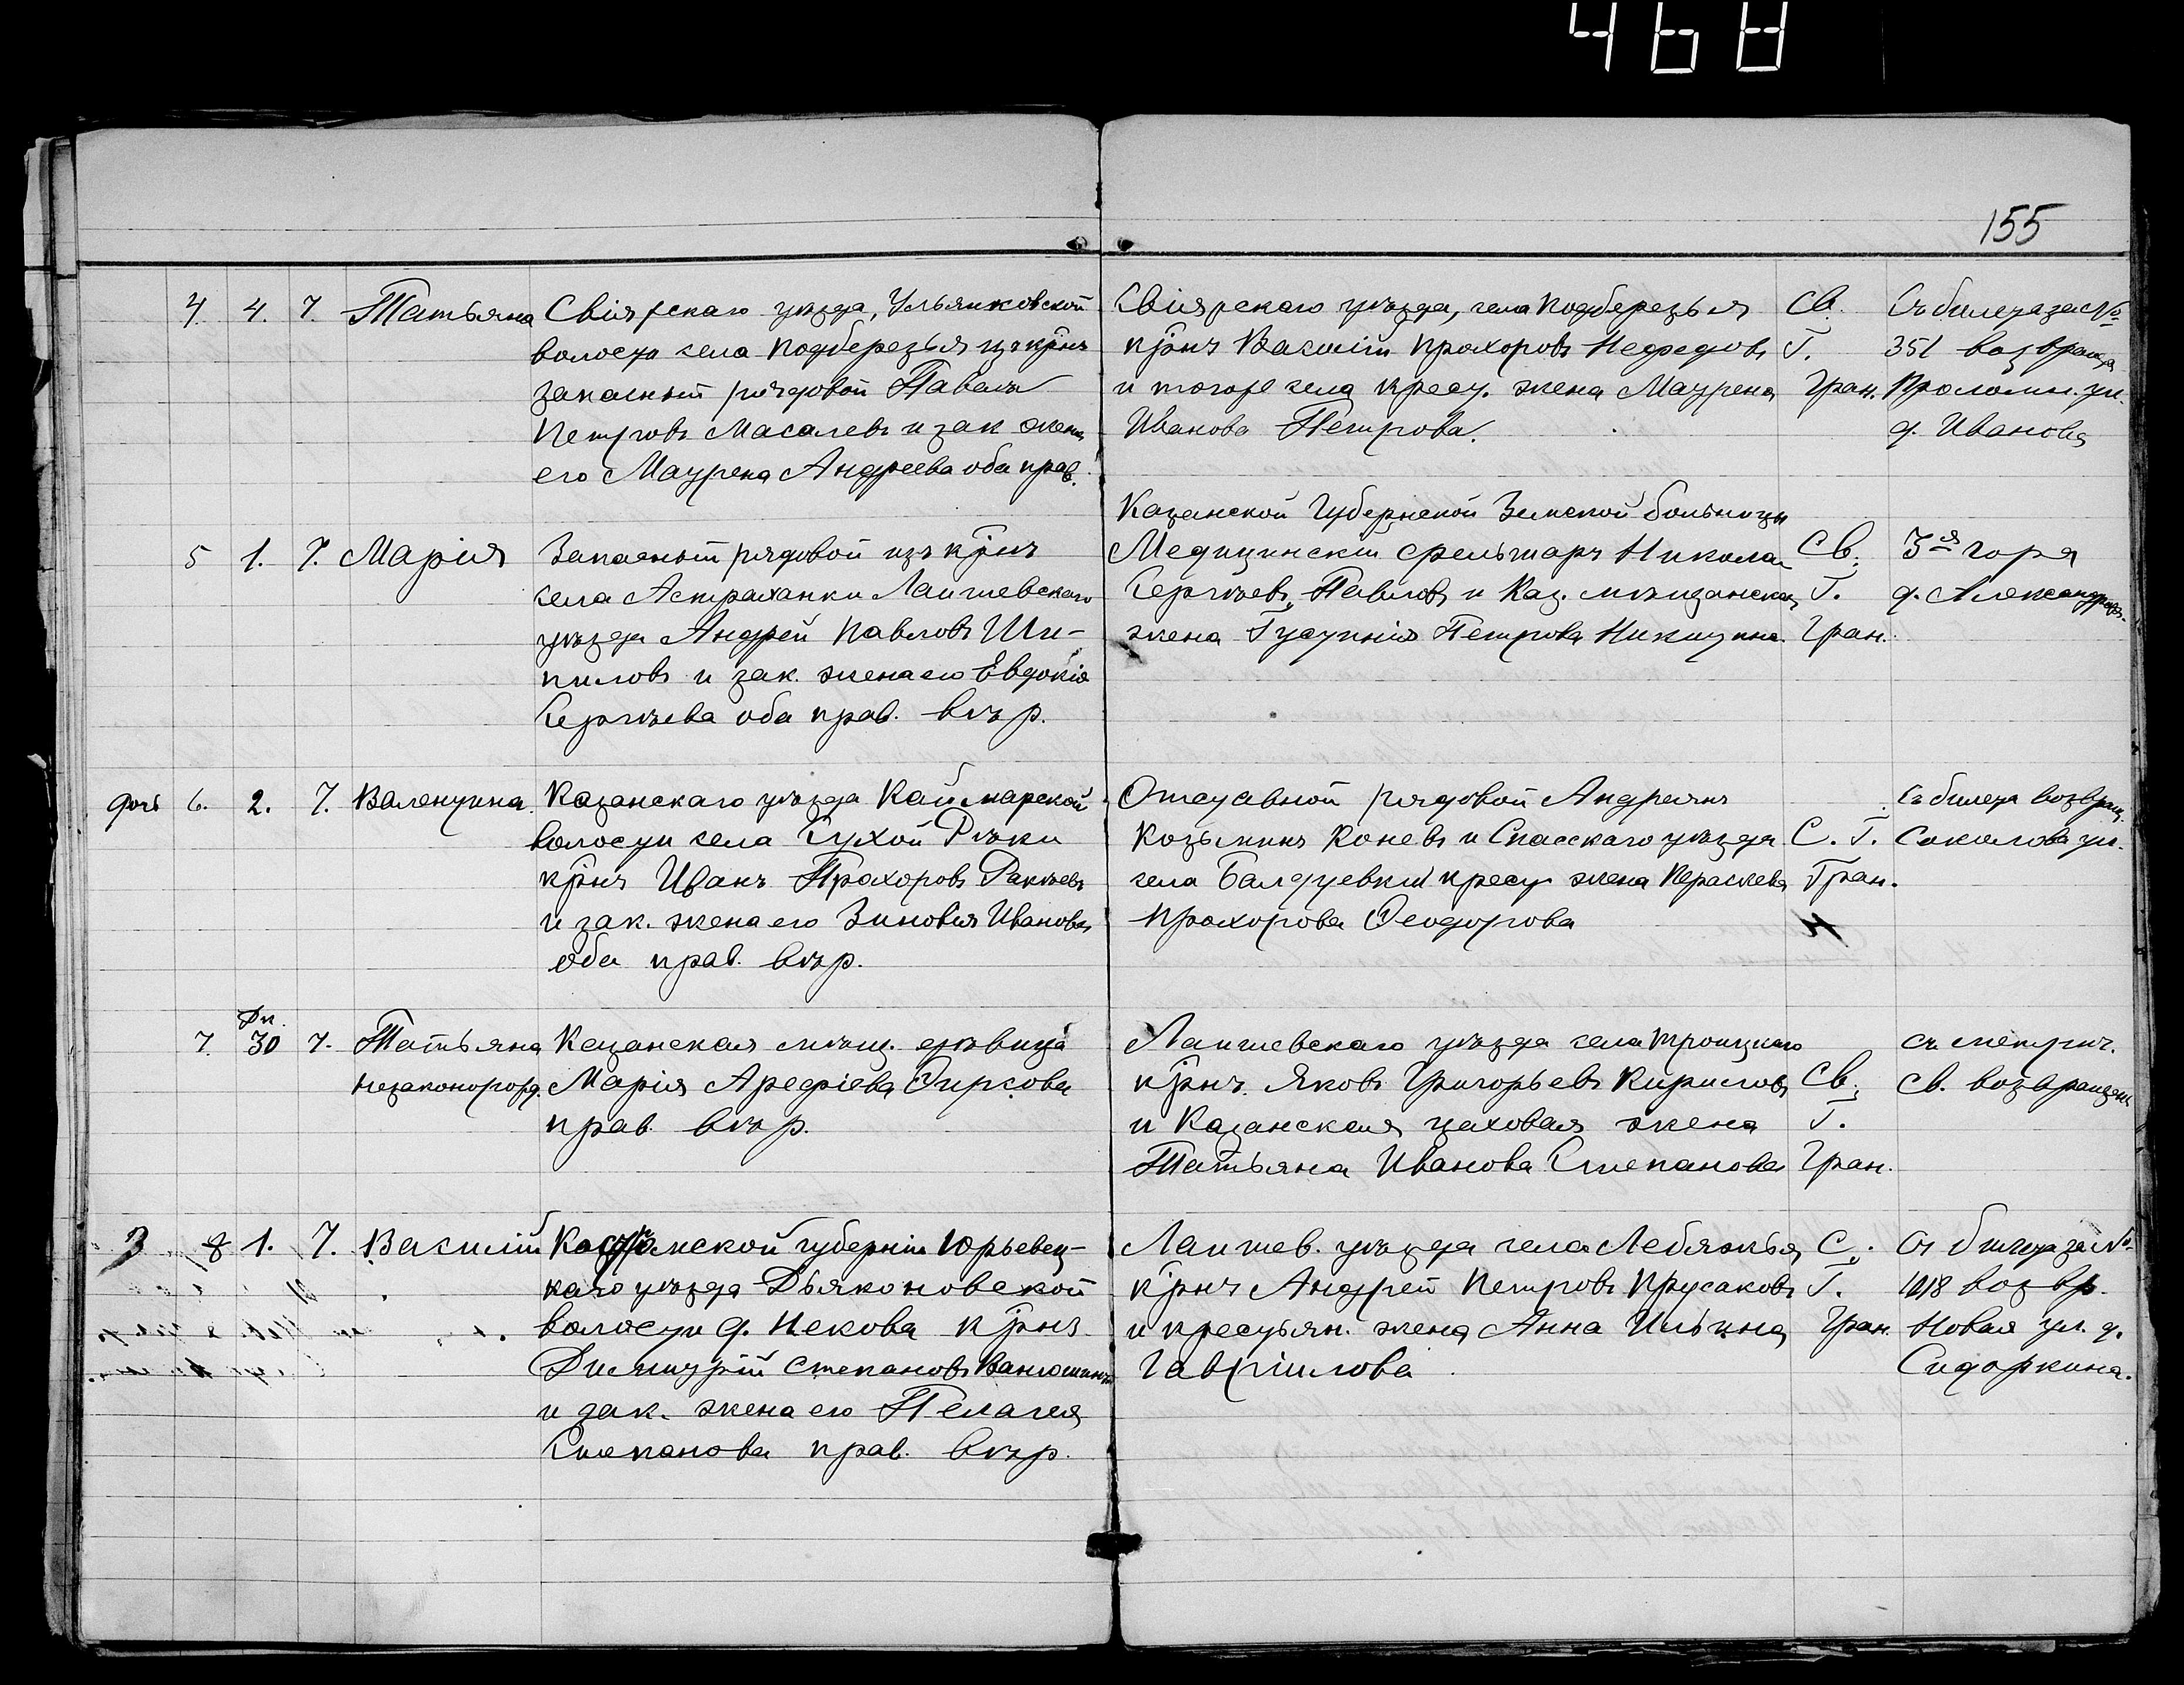 468
155
4. 4. 7. Татьяна Свіяжскаго уѣзда, Ульянковской
волости села Подберезья изъ крнъ
запасный рядовой Павелъ
Петровъ Масалевъ и зак жена
его Маурена Андреева оба прав.
Свіяжскаго уѣзда, села Подберезья
крнъ Василій Прохоровъ Нефедовъ
и тогоже села крест. жена Маурена
Иванова Петрова.
Св.
Г.
Гран.
Съ билета за №
351 возвращ
Проломн. ул.
д. Иванова
5 1. 7. Марія Запасный рядовой изъ крнъ
села Астраханки Лаишевскаго
уѣзда Андрей Павловъ Ши-
пиловъ и зак. жена его Евдокія
Сергѣева оба прав. вѣр.
Казанской Губернской Земской больницы
Медицинскій фельшаръ Николай
Сергѣевъ Павловъ и Каз. мѣщанская
жена Устинія Петрова Никитина
Св.
Г.
Гран.
3ья гора
д. Александров.
дочь 6. 2. 7. Валентина Казанскаго уѣзда Каймарской
волости села Сухой Рѣки
крнъ Иванъ Прохоровъ Ракѣевъ
и зак. жена его Зиновія Иванова
оба прав. вѣр.
Отставной рядовой Андреянъ
Козьминъ Коневъ и Спасскаго уѣзда
села крест жена Параскева
Прохорова Ѳеодорова
С. Г.
Гран.
Съ билета возвращ.
Соколова ул.
7. Дк. 30 7. Татьяна Казанская мѣщ. дѣвица
незаконорожд. Марія Арефіева Фирсова
прав. вѣр.
Лаишевскаго уѣзда села Троицкаго
крнъ Яковъ Григорьевъ Кириловъ
и Казанская цаховая жена
Татьяна Иванова Степанова
Св.
Г.
Гран.
съ метрич.
св. возвращен
3 8 1. 7. Василій Костромской губерніи Юрьевец-
каго уѣзда Дьяконовской
волости д. Искова крнъ
Димитрій Степановъ Ванюшинъ
и зак. жена его Пелагея
Степанова прав. вѣр.
Лаишев. уѣзда села Лебяжья
крнъ Андрей Петровъ Прусаковъ
и крестьян. жена Анна Ильина
Гавріилова
С.
Г.
Гран.
Съ билета за №
1018 возвр.
Новая ул. д.
Сидоркина.